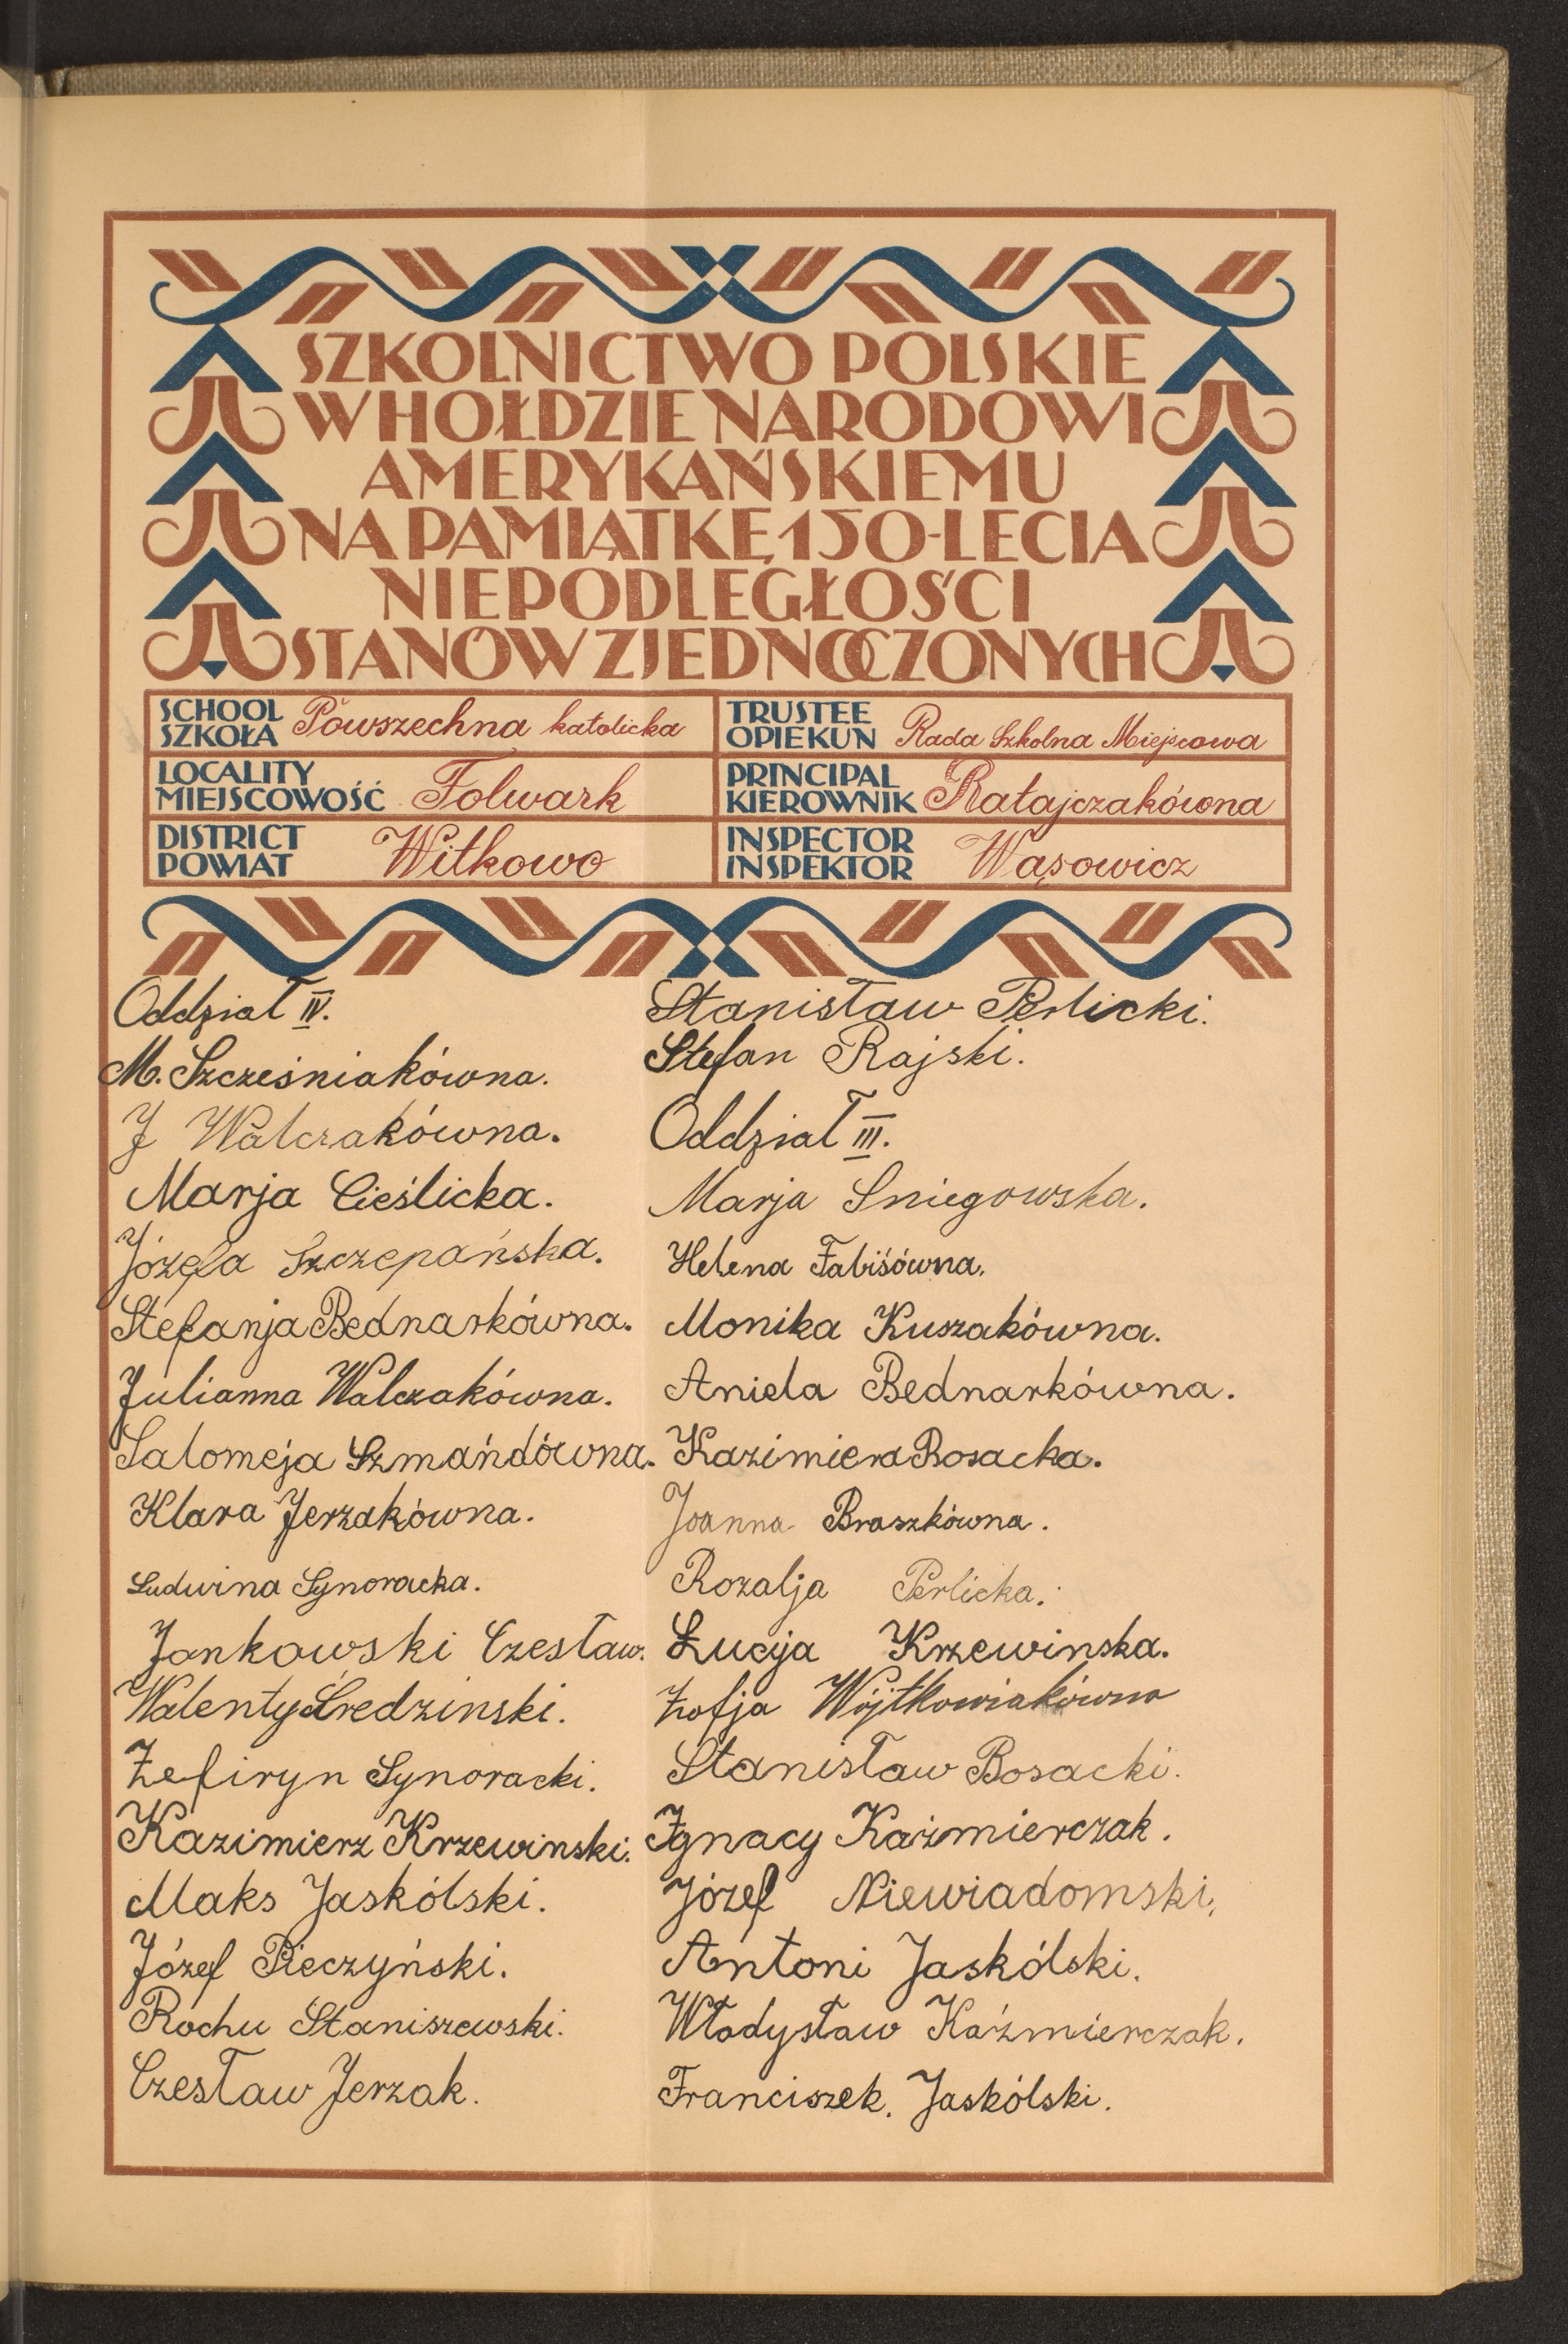 SZKOLNICTWO POLSKIE
W HOŁDZIE NARODOWI
AMERYKAŃSKIEMU
NA PAMIĄTKĘ 150-LECIA
NIEPODLEGŁOŚCI
STANÓW ZJEDNOCZONYCH
SCHOOL
SZKOŁA Powszechna katolicka
TRUSTEE
OPIEKUN Rada Szkolna Miejscowa
LOCALITY
MIEJSCOWOŚĆ Folwark
PRINCIPAL
KIEROWNIK Ratajczakówna
DISTRICT
POWIAT Witkowo
INSPECTOR
INSPEKTOR Wąsowicz
Oddział IV.
M. Szcześniakówna.
J Walczakówna.
Marja Cieślicka.
Józefa Szczepańska.
Stefanja Bednarkówna.
Julianna Walczakówna.
Salomeja Szmańdówna.
Klara Jerzakówna.
Ludwina Synoracka.
Jankowski Czesław.
Walenty Średzinski.
Zefiryn Synoracki.
Kazimierz Krzewinski.
Maks Jaskólski.
Józef Pieczyński.
Rochu Staniszewski.
Czesław Jerzak.
Stanisław Perlicki.
Stefan Rajski.
Oddział III.
Marja Sniegowska.
Helena Fabiśówna.
Monika Kuszakówna.
Aniela Bednarkówna.
Kazimiera Bosacka.
Joanna Braszkówna.
Rozalja Perlicka.
Łucyja Krzewinska.
Zofja Wójtkowiakówna
Stanisław Bosacki.
Ignacy Kaźmierczak.
Józef Niewiadomski.
Antoni Jaskólski.
Władysław Kaźmierczak.
Franciszek. Jaskólski.